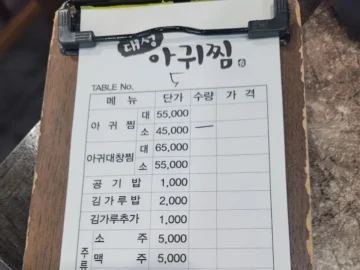 대성
아귀찜
5
TABLE No.
메 뉴 단가 수량 가 격
아 귀 찜 대 55,000
소 45,000 —
아귀대창찜 대 65,000
소 55,000
공 기 밥 1,000
김 가 루 밥 2,000
김가루추가 1,000
주류 소 주 5,000
맥 주 5,000